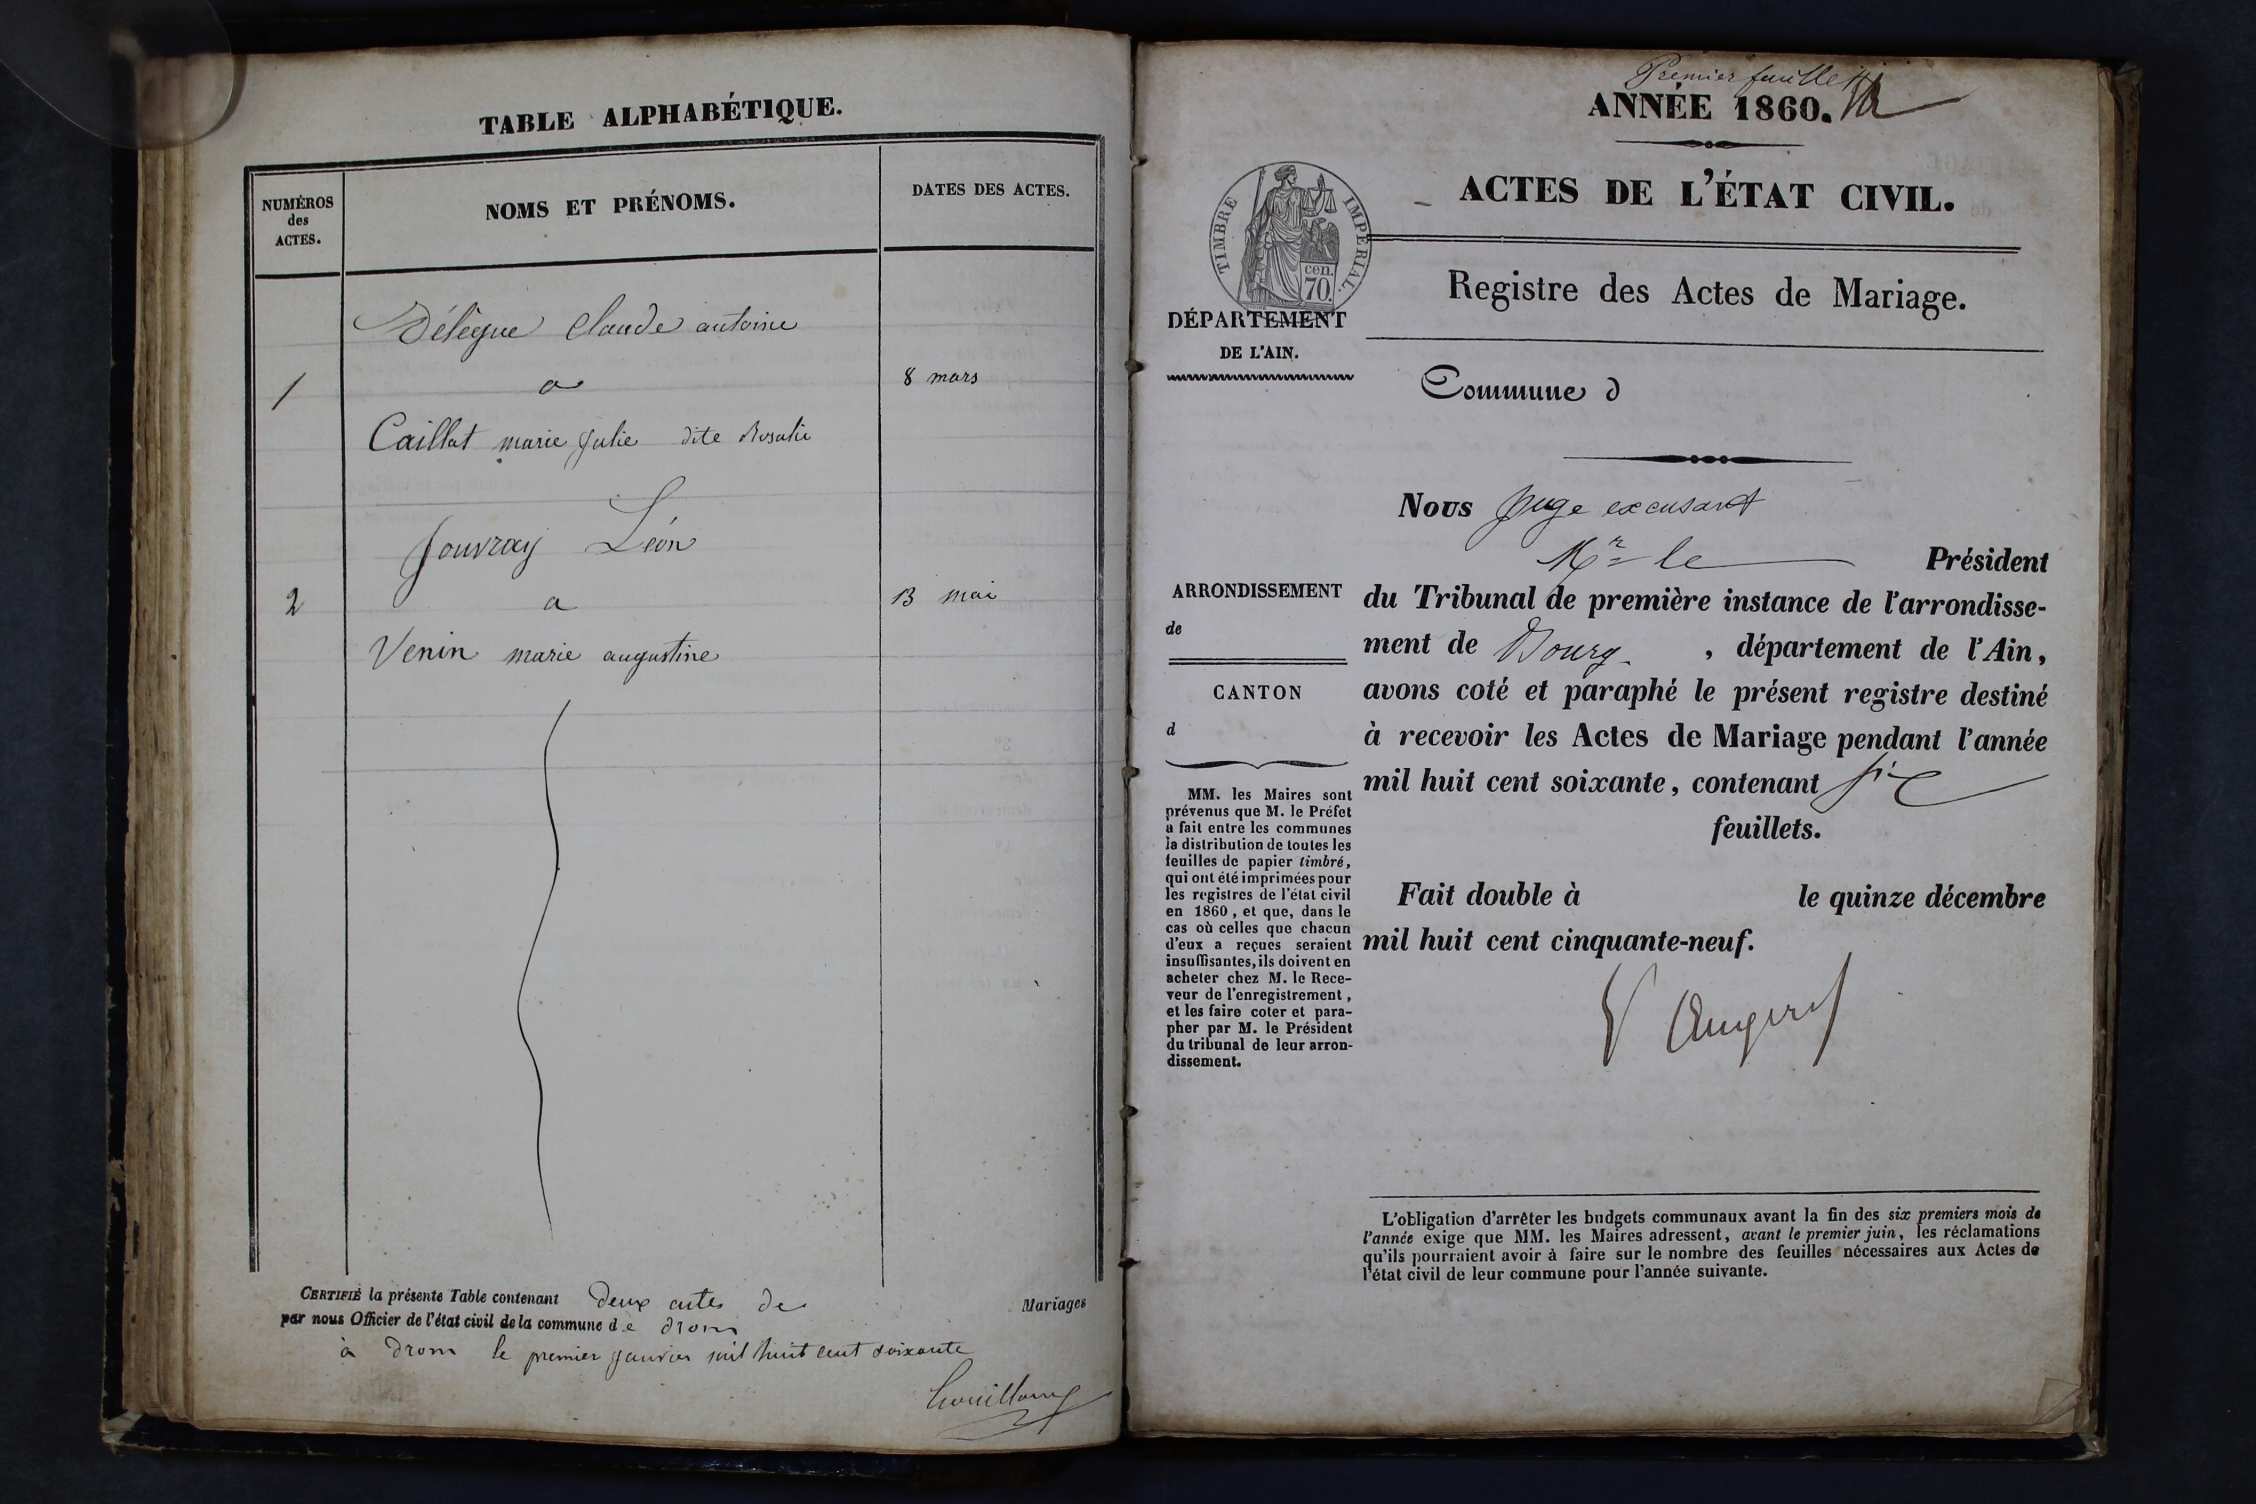 TABLE ALPHABÉTIQUE.
NUMÉROS
des
ACTES.
NOMS ET PRÉNOMS.
DATES DES ACTES.
Délègue Claude antoine
1
a
8 mars
Caillat marie Julie dite Rosalie
Jouvray Léon
2
a
13 mai
Venin marie augustine
CERTIFIÉ la présente Table contenant deux actes de Mariages
par nous Officier de l'état civil de la commune de drom
à drom le premier Janvier mil huit cent soixante
Premier feuillet
ANNÉE 1860.
ACTES DE L'ÉTAT CIVIL.
TIMBRE IMPÉRIAL.
cen.
70.
Registre des Actes de Mariage.
DÉPARTEMENT
DE L'AIN.
Commune d
Nous Juge excusant
Mr le Président
ARRONDISSEMENT
de
CANTON
d
du Tribunal de première instance de l'arrondisse-
ment de Bourg , département de l'Ain,
avons coté et paraphé le présent registre destiné
à recevoir les Actes de Mariage pendant l'année
mil huit cent soixante, contenant six
feuillets.
MM. les Maires sont
prévenus que M. le Préfet
a fait entre les communes
la distribution de toutes les
feuilles de papier timbré,
qui ont été imprimées pour
les registres de l'état civil
en 1860, et que, dans le
cas où celles que chacun
d'eux a reçues seraient
insuffisantes, ils doivent en
acheter chez M. le Rece-
veur de l'enregistrement,
et les faire coter et para-
pher par M. le Président
du tribunal de leur arron-
dissement.
Fait double à le quinze décembre
mil huit cent cinquante-neuf.
L'obligation d'arrêter les budgets communaux avant la fin des six premiers mois de
l'année exige que MM. les Maires adressent, avant le premier juin, les réclamations
qu'ils pourraient avoir à faire sur le nombre des feuilles nécessaires aux Actes de
l'état civil de leur commune pour l'année suivante.